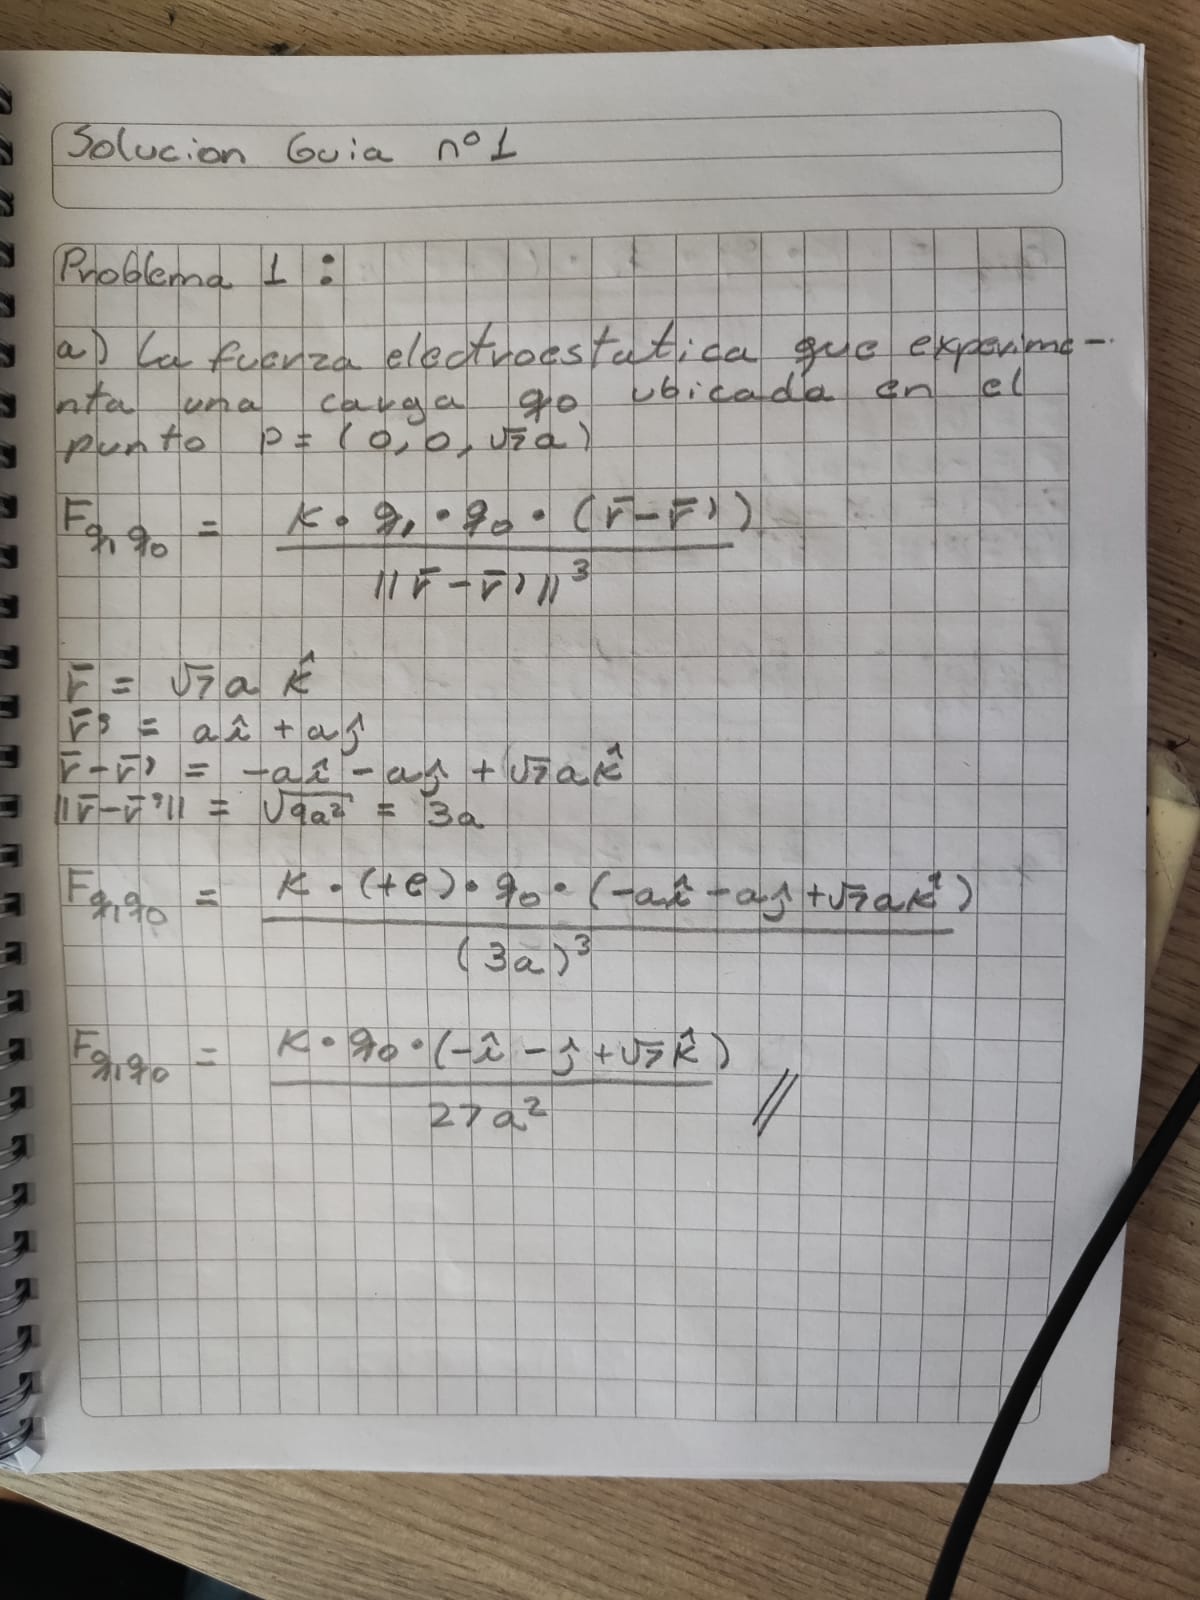 Solucion Guia nº1
Problema 1:
a) La fuerza electroestatica que experime-
nta una carga q0 ubicada en el
punto P = (0, 0, √7a)
Fq₁q₀ = K · q₁ · q₀ · (r̄ - r̄') / ||r̄ - r̄'||³
r̄ = √7 a k̂
r̄' = aî + aĵ
r̄ - r̄' = -aî - aĵ + √7 a k̂
||r̄ - r̄'|| = √9a² = 3a
Fq₁q₀ = K · (+e) · q₀ · (-aî - aĵ + √7 a k̂) / (3a)³
Fq₁q₀ = K · q₀ · (-î - ĵ + √7 k̂) / 27a² //